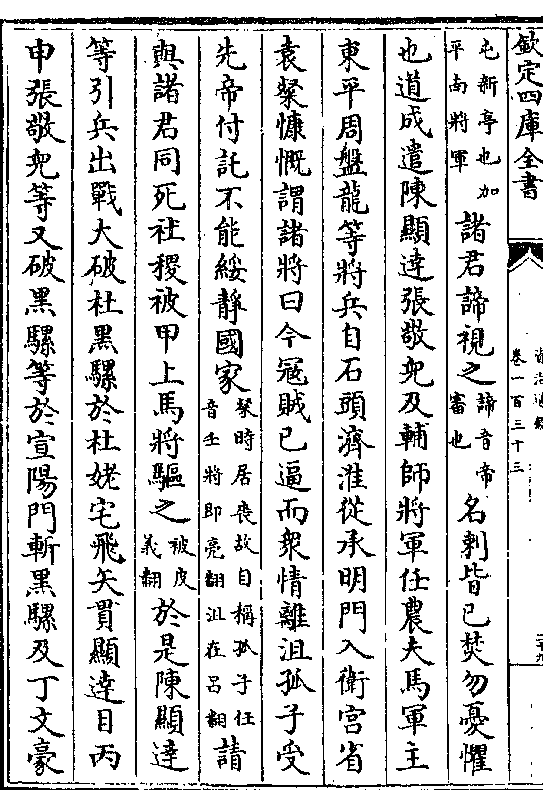 欽定四庫全書
卷一百三十三
屯新亭也加
平南將軍
諸君諦視之
諦音帝
審也
名剌皆已焚勿憂懼
也道成遣陳顯達張敬兒及輔師將軍任農夫馬軍主
東平周盤龍等將兵自石頭濟淮從承明門入衛宮省
袁粲慷慨謂諸將曰今寇賊已逼而衆情離沮孤子受
先帝付託不能綏靜國家
粲時居喪故自稱孤子任
音壬將即亮翻沮在呂翻
請
與諸君同死社稷被甲上馬將驅之
被皮
義翻
於是陳顯達
等引兵出戰大破杜黑騾於杜姥宅飛矢貫顯達目丙
申張敬兒等又破黑騾等於宣陽門斬黑騾及丁文豪